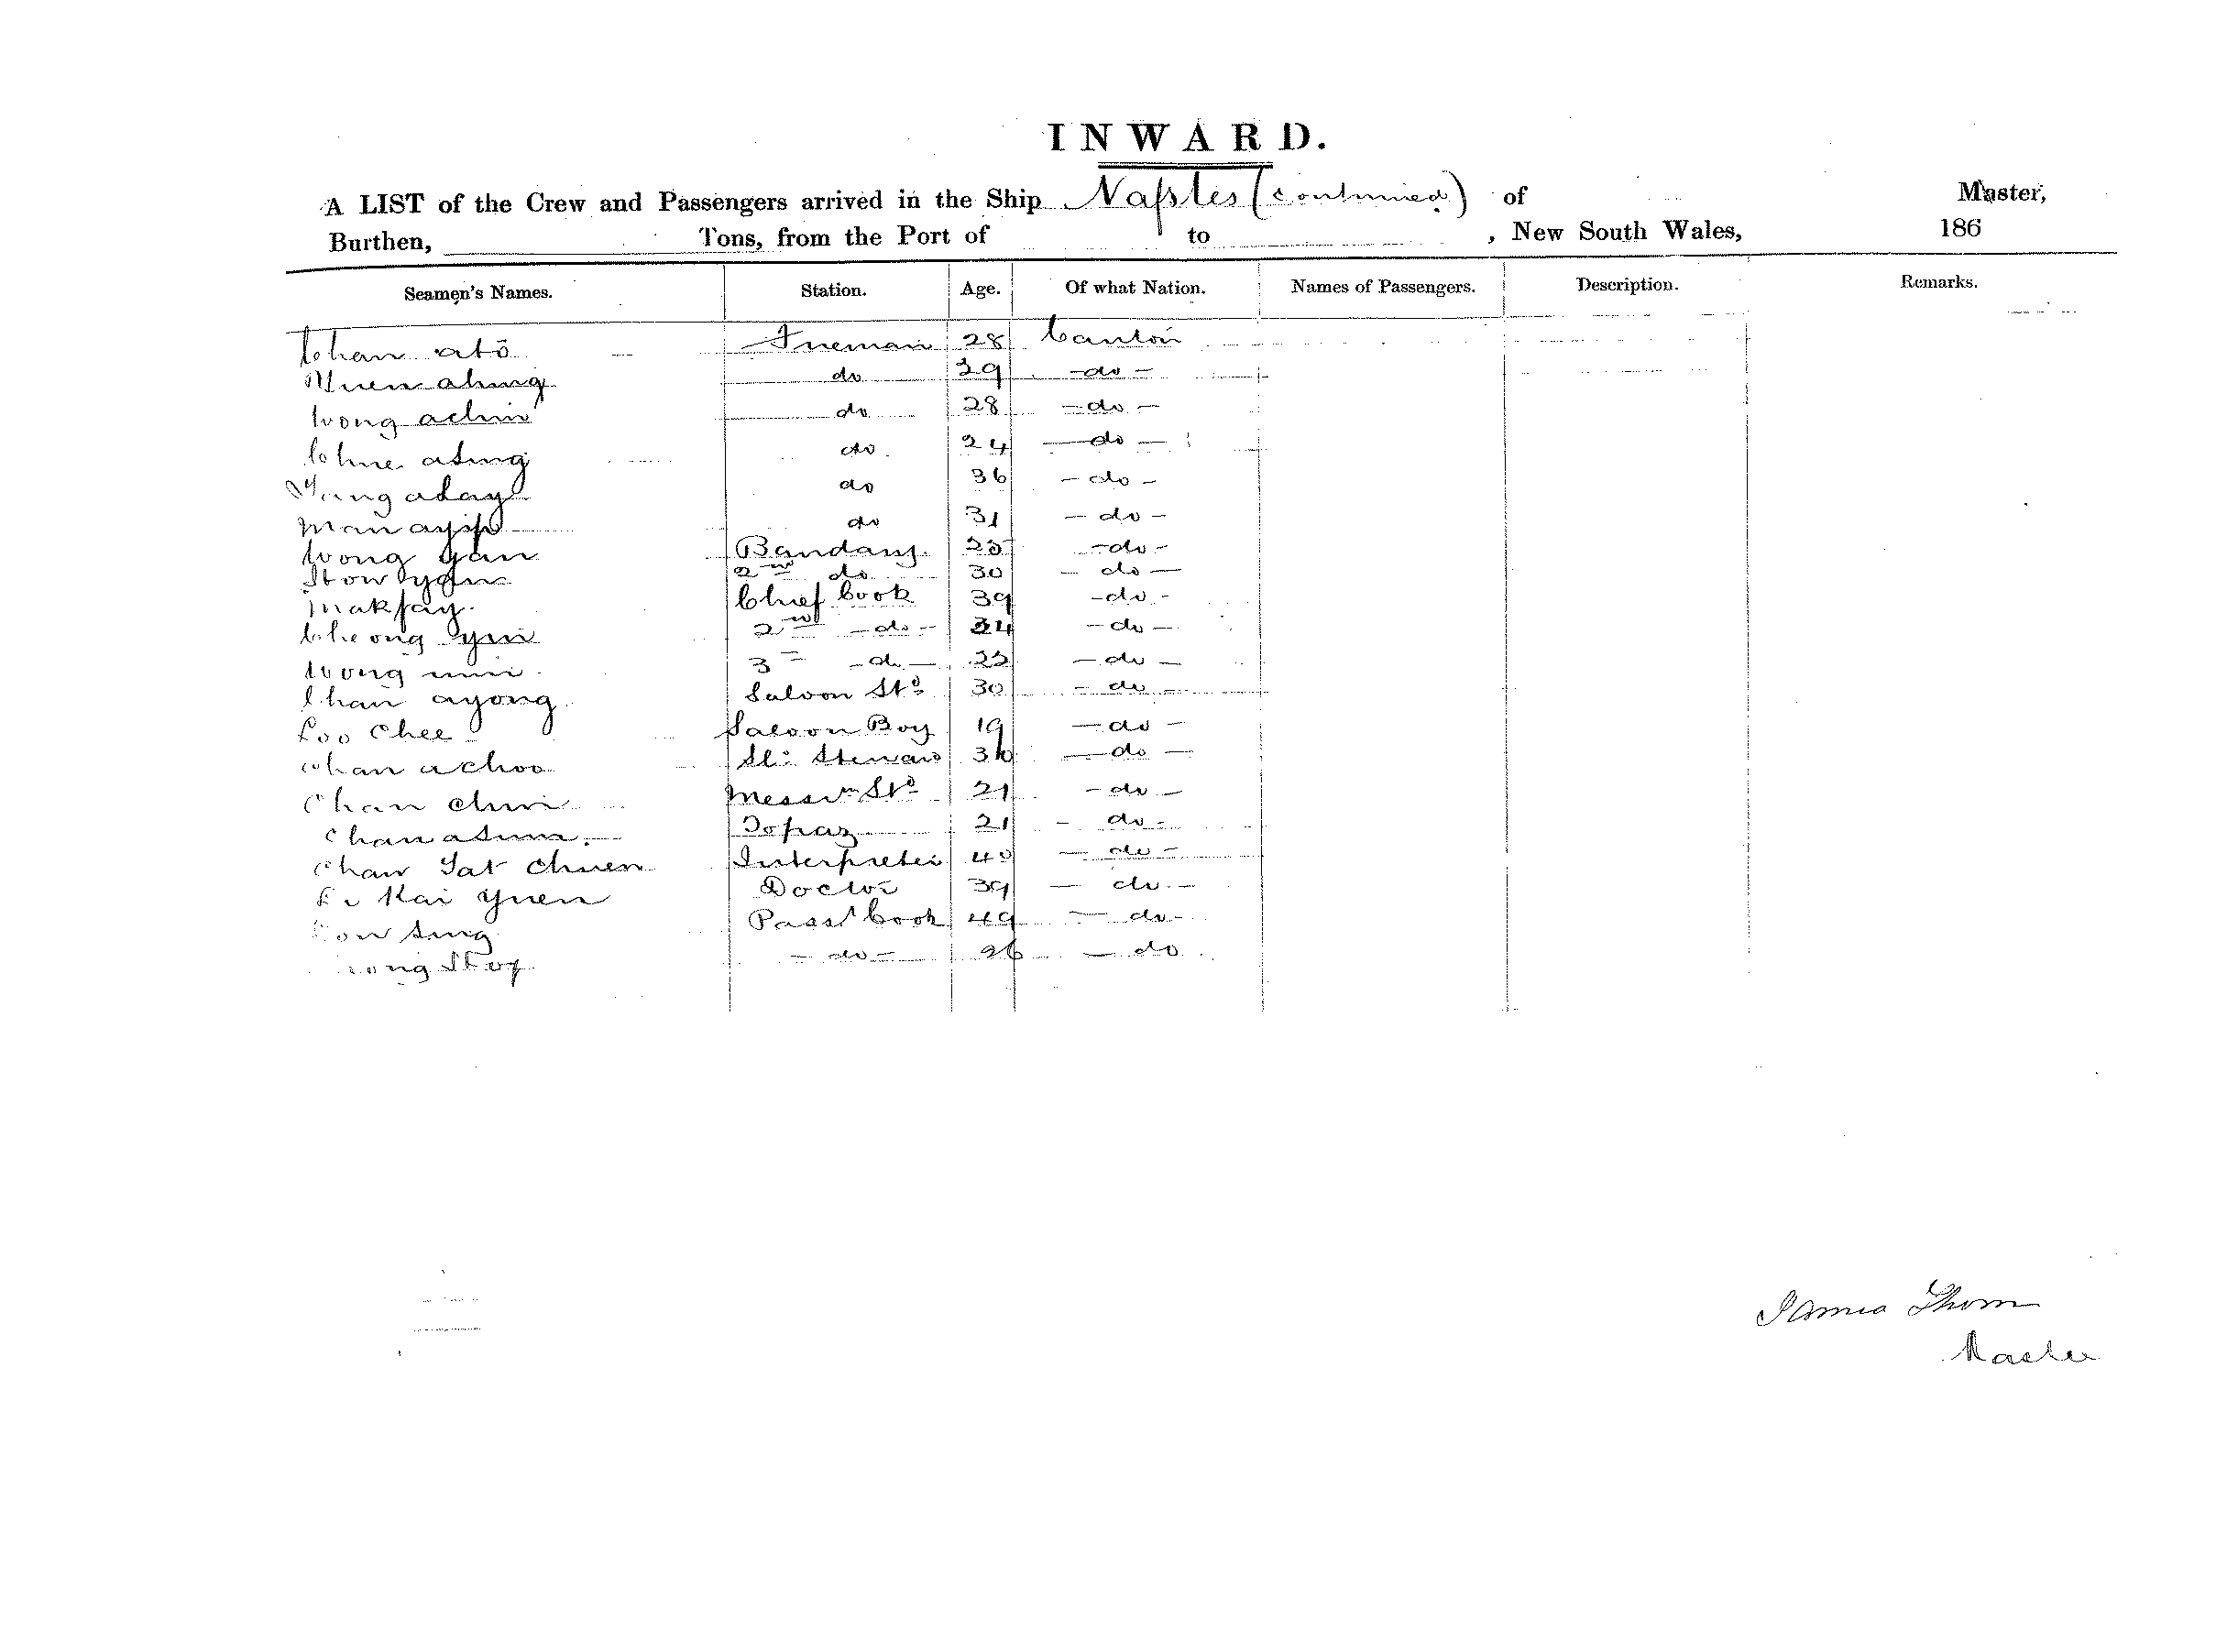 INWARD.
A LIST of the Crew and Passengers arrived in the Ship Naples (continued) of Master,
Burthen, Tons, from the Port of to , New South Wales, 186
Seamen's Names. Station. Age. Of what Nation. Names of Passengers. Description. Remarks.
Chan ato Fireman 28 Canton
ahung do 29 -do-
Wong achin do 28 -do-
Chue asing do 24 -do-
do 36 -do-
Man ayip do 31 -do-
Wong Yan Bandary 25 -do-
Stow yan 2nd do 30 -do-
Mak fay Chief Cook 39 -do-
Cheong yin 2nd -do- 34 -do-
Wong 3 -do- -do-
Chan ayong Saloon Std 30 -do-
Loo Chee Saloon Boy 19 -do-
Chan achoo Steward 36 -do-
Chan chui Messrm Std 21 -do-
Chan asum Topaz 21 -do-
Chan Tat Chuen Interpreter 40 -do-
Kai Yuen Doctor 39 -do-
sing Passr Cook 49 -do-
-do- 26 -do
James Thom
Master